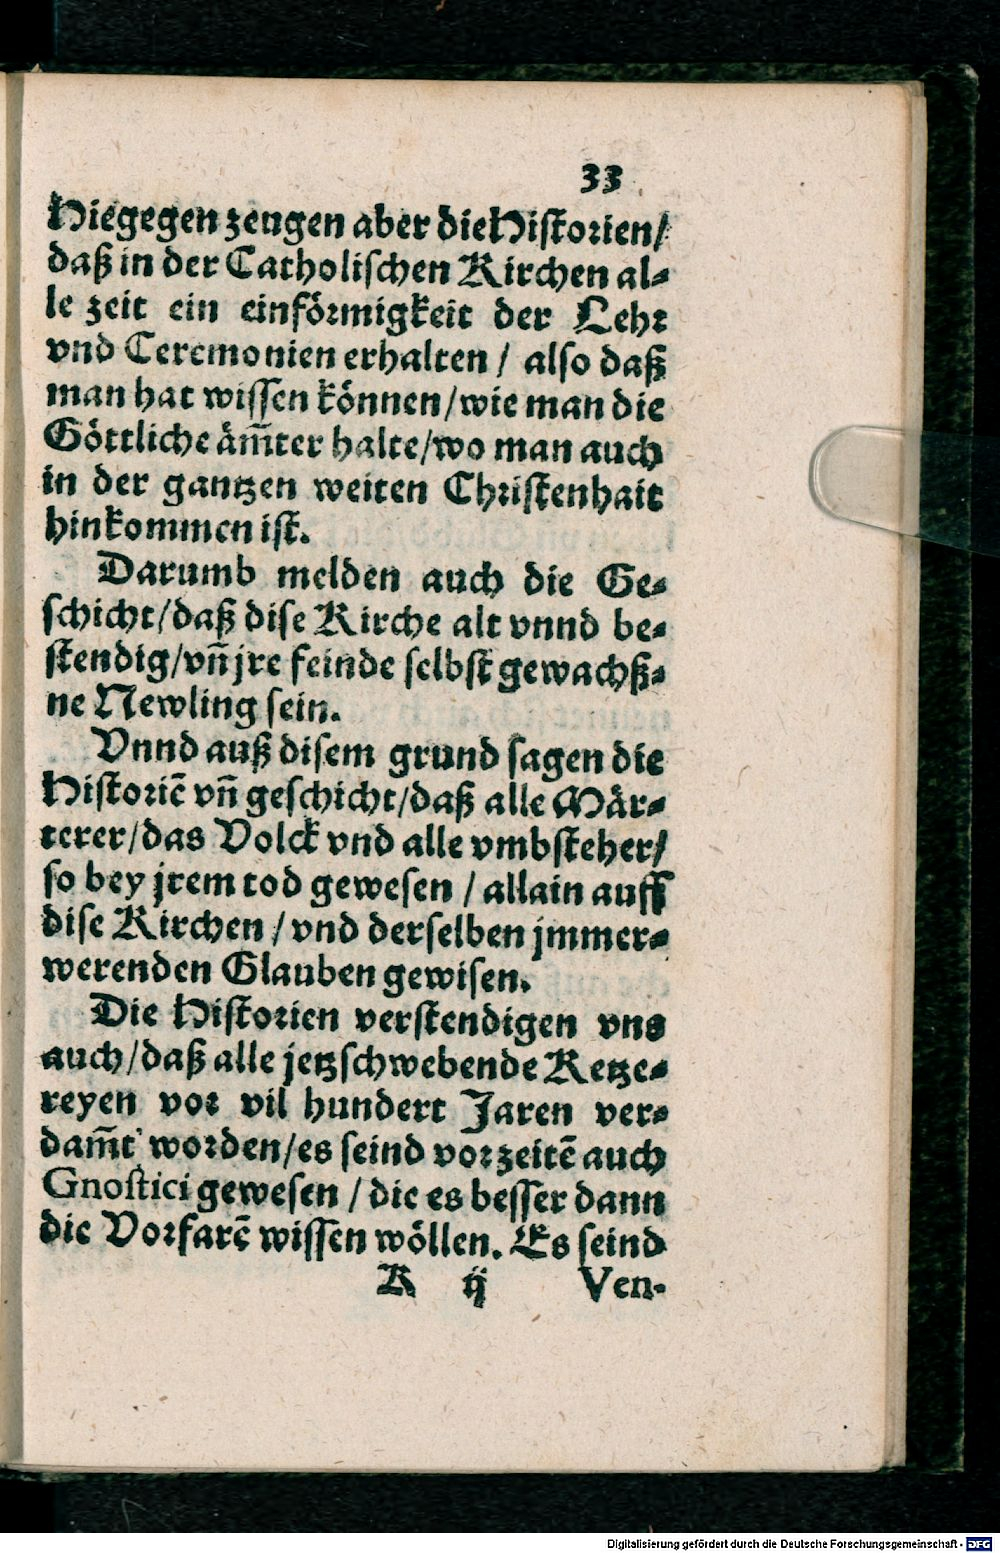 33
Hiegegen zeugen aber die Historien/
daß in der Catholischen Kirchen al⸗
le zeit ein einförmigkeit der Lehr
vnd Ceremonien erhalten / also daß
man hat wissen können/wie man die
Göttliche äm̃ter halte/wo man auch
in der gantzen weiten Christenhait
hinkommen ist.
Darumb melden auch die Ge⸗
schicht/daß dise Kirche alt vnnd be⸗
stendig/vñ jre feinde selbst gewachß⸗
ne Newling sein.
Vnnd auß disem grund sagen die
Historiẽ vñ geschicht/daß alle Mär⸗
terer/das Volck vnd alle vmbsteher/
so bey jrem tod gewesen / allain auff
dise Kirchen / vnd derselben jmmer⸗
werenden Glauben gewisen.
Die Historien verstendigen vns
auch/daß alle jetzschwebende Ketze⸗
reyen vor vil hundert Jaren ver⸗
dam̃t worden/es seind vorzeitẽ auch
Gnostici gewesen / die es besser dann
die Vorfarẽ wissen wöllen. Es seind
K ij Ven⸗
Digitalisierung gefördert durch die Deutsche Forschungsgemeinschaft - DFG